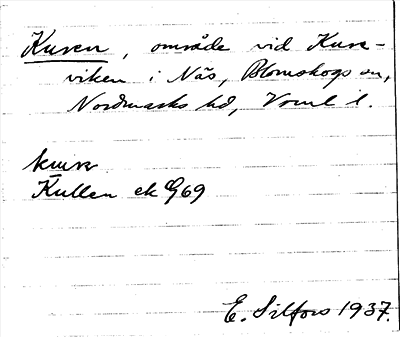 Kuren, område vid Kure-
viken i Näs, Blomskogs sn,
Nordmarks hd, Vrml l.
kurn
Kullen ek G69
E. Silfors 1937.